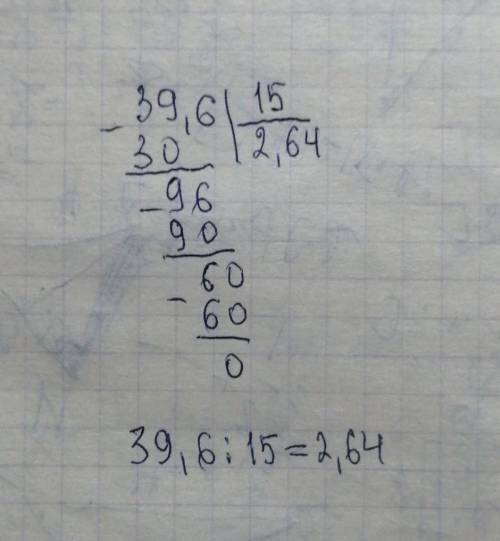 - 39,6 | 15
30 | 2,64
- 96
90
- 60
60
0
39,6 : 15 = 2,64